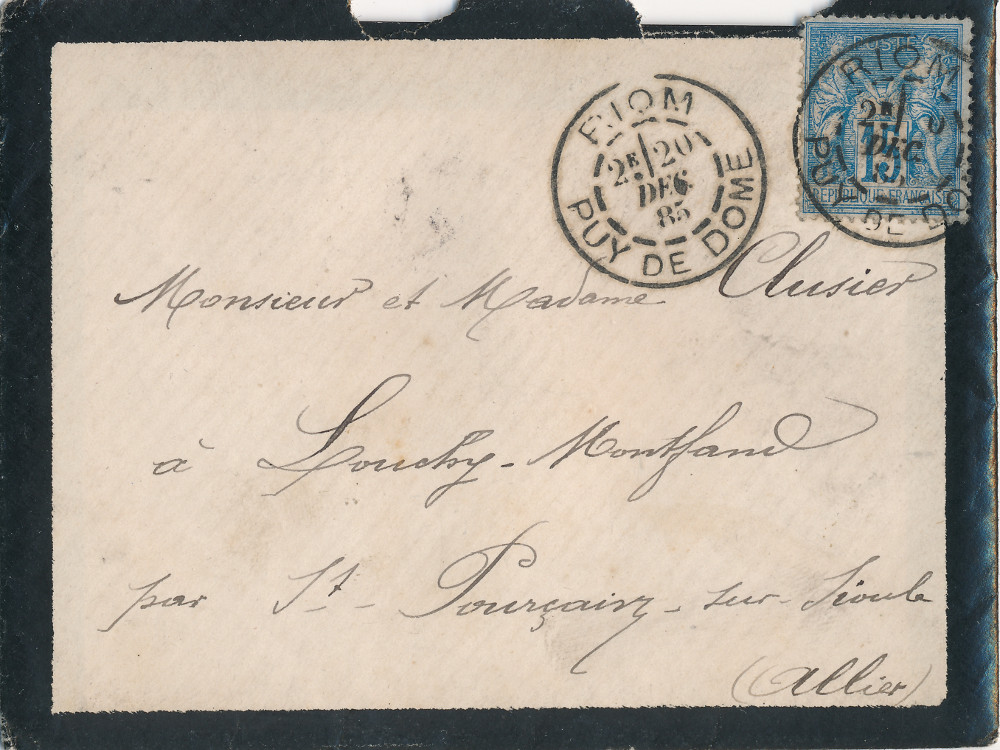 RIOM
2E 20
DEC
85
PUY DE DOME
RIOM
2E
DEC
PUY DE DOME
POSTES
15
REPUBLIQUE FRANÇAISE
Monsieur et Madame Clusier
à Louchy-Montfand
par St-Pourçain-sur-Sioule
(Allier)